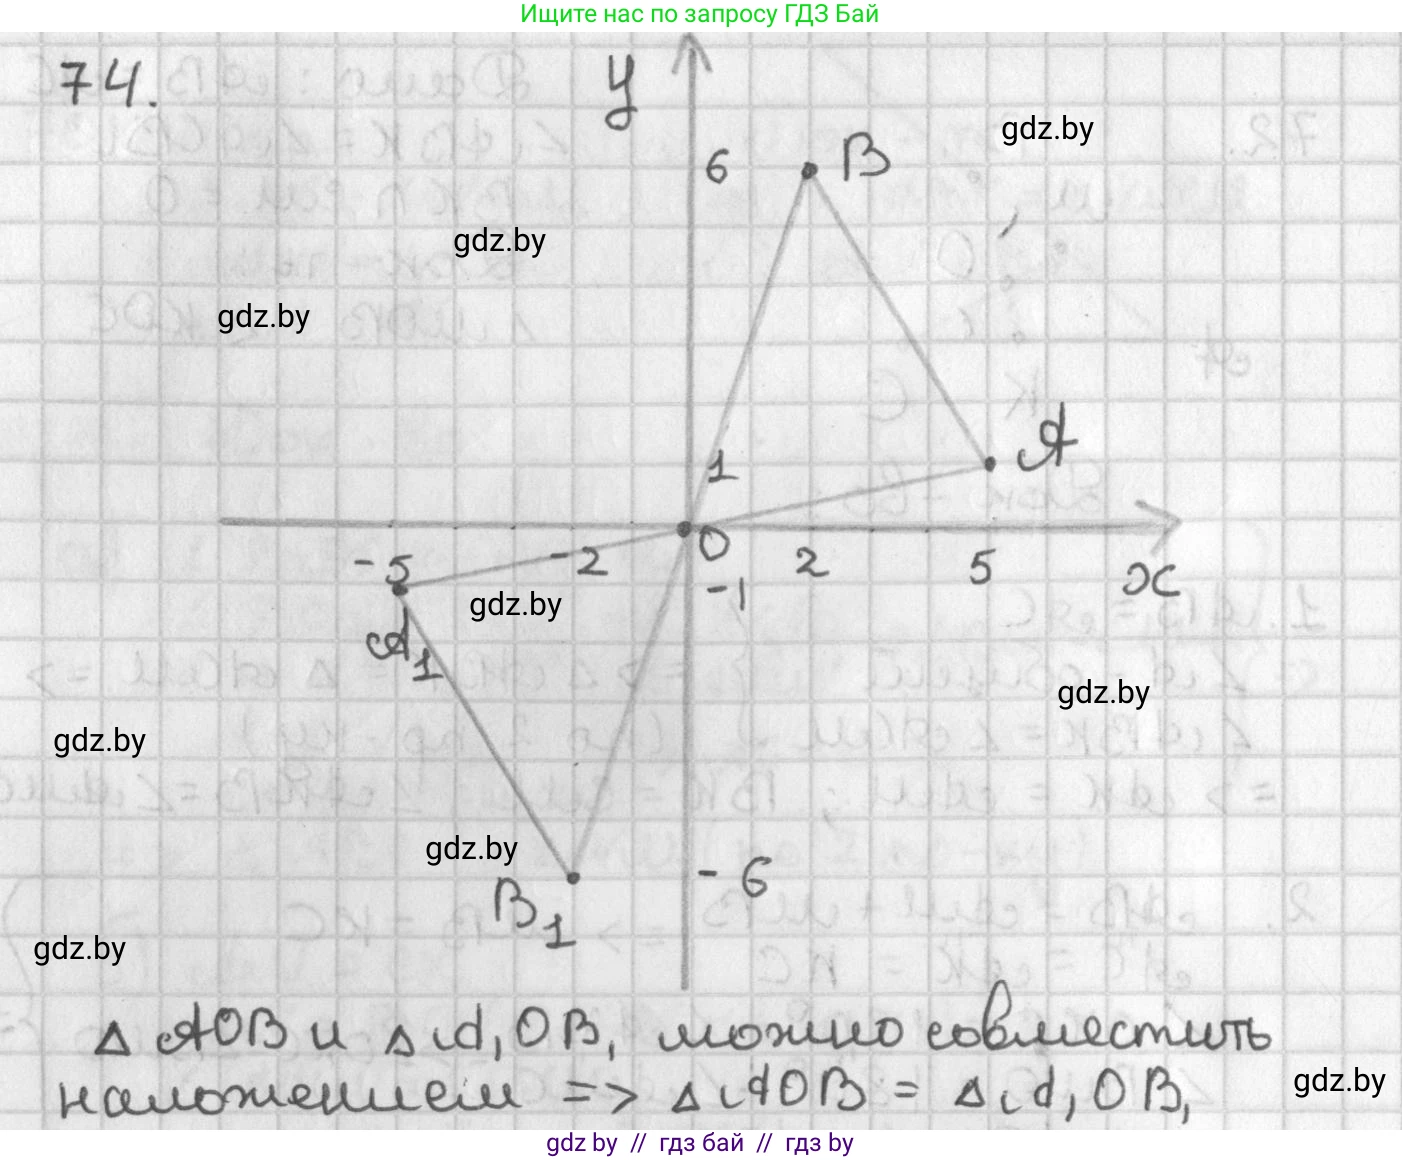 Ищите нас по запросу ГДЗ Бай
74.
y
gdz.by
6
B
gdz.by
gdz.by
A
1
-5
-2
0
2
5
x
-1
gdz.by
A1
gdz.by
gdz.by
gdz.by
-6
B1
gdz.by
Δ AOB и Δ A1OB1 можно совместить
наложением => Δ AOB = Δ A1OB1
gdz.by
gdz by // гдз бай // гдз by